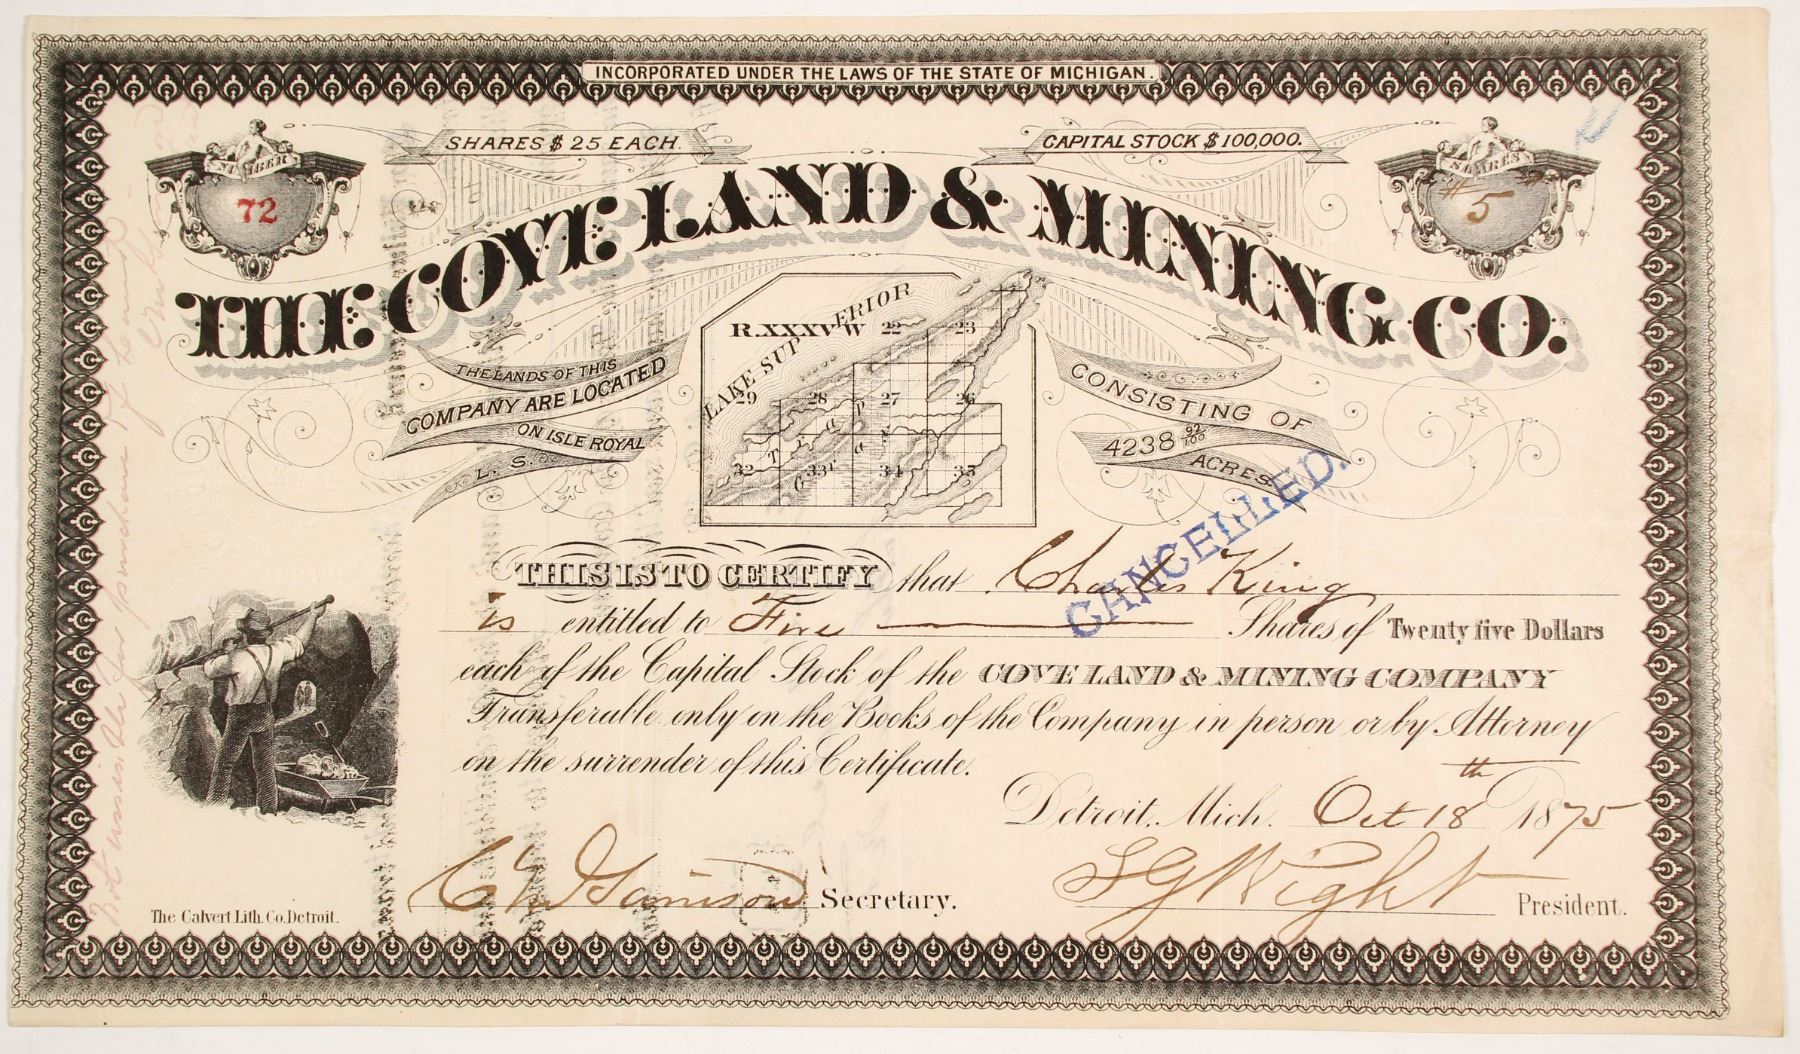 INCORPORATED UNDER THE LAWS OF THE STATE OF MICHIGAN.
SHARES $ 25 EACH.
CAPITAL STOCK $ 100,000.
NUMBER
72
SHARES
# 5 #
THE COVE LAND & MINING CO.
R. XXXV W
LAKE SUPERIOR
22 23
29 28 27 26
32 33 34 35
THE LANDS OF THIS
COMPANY ARE LOCATED
ON ISLE ROYAL
L. S.
CONSISTING OF
4238 92/100
ACRES
CANCELLED.
THIS IS TO CERTIFY that Charles King
is entitled to Five Shares of Twenty five Dollars
each of the Capital Stock of the COVE LAND & MINING COMPANY
Transferable only on the Books of the Company in person or by Attorney
on the surrender of this Certificate.
Detroit, Mich. Oct 18th 1875
Secretary.
S G Wight President.
The Calvert Lith. Co. Detroit.